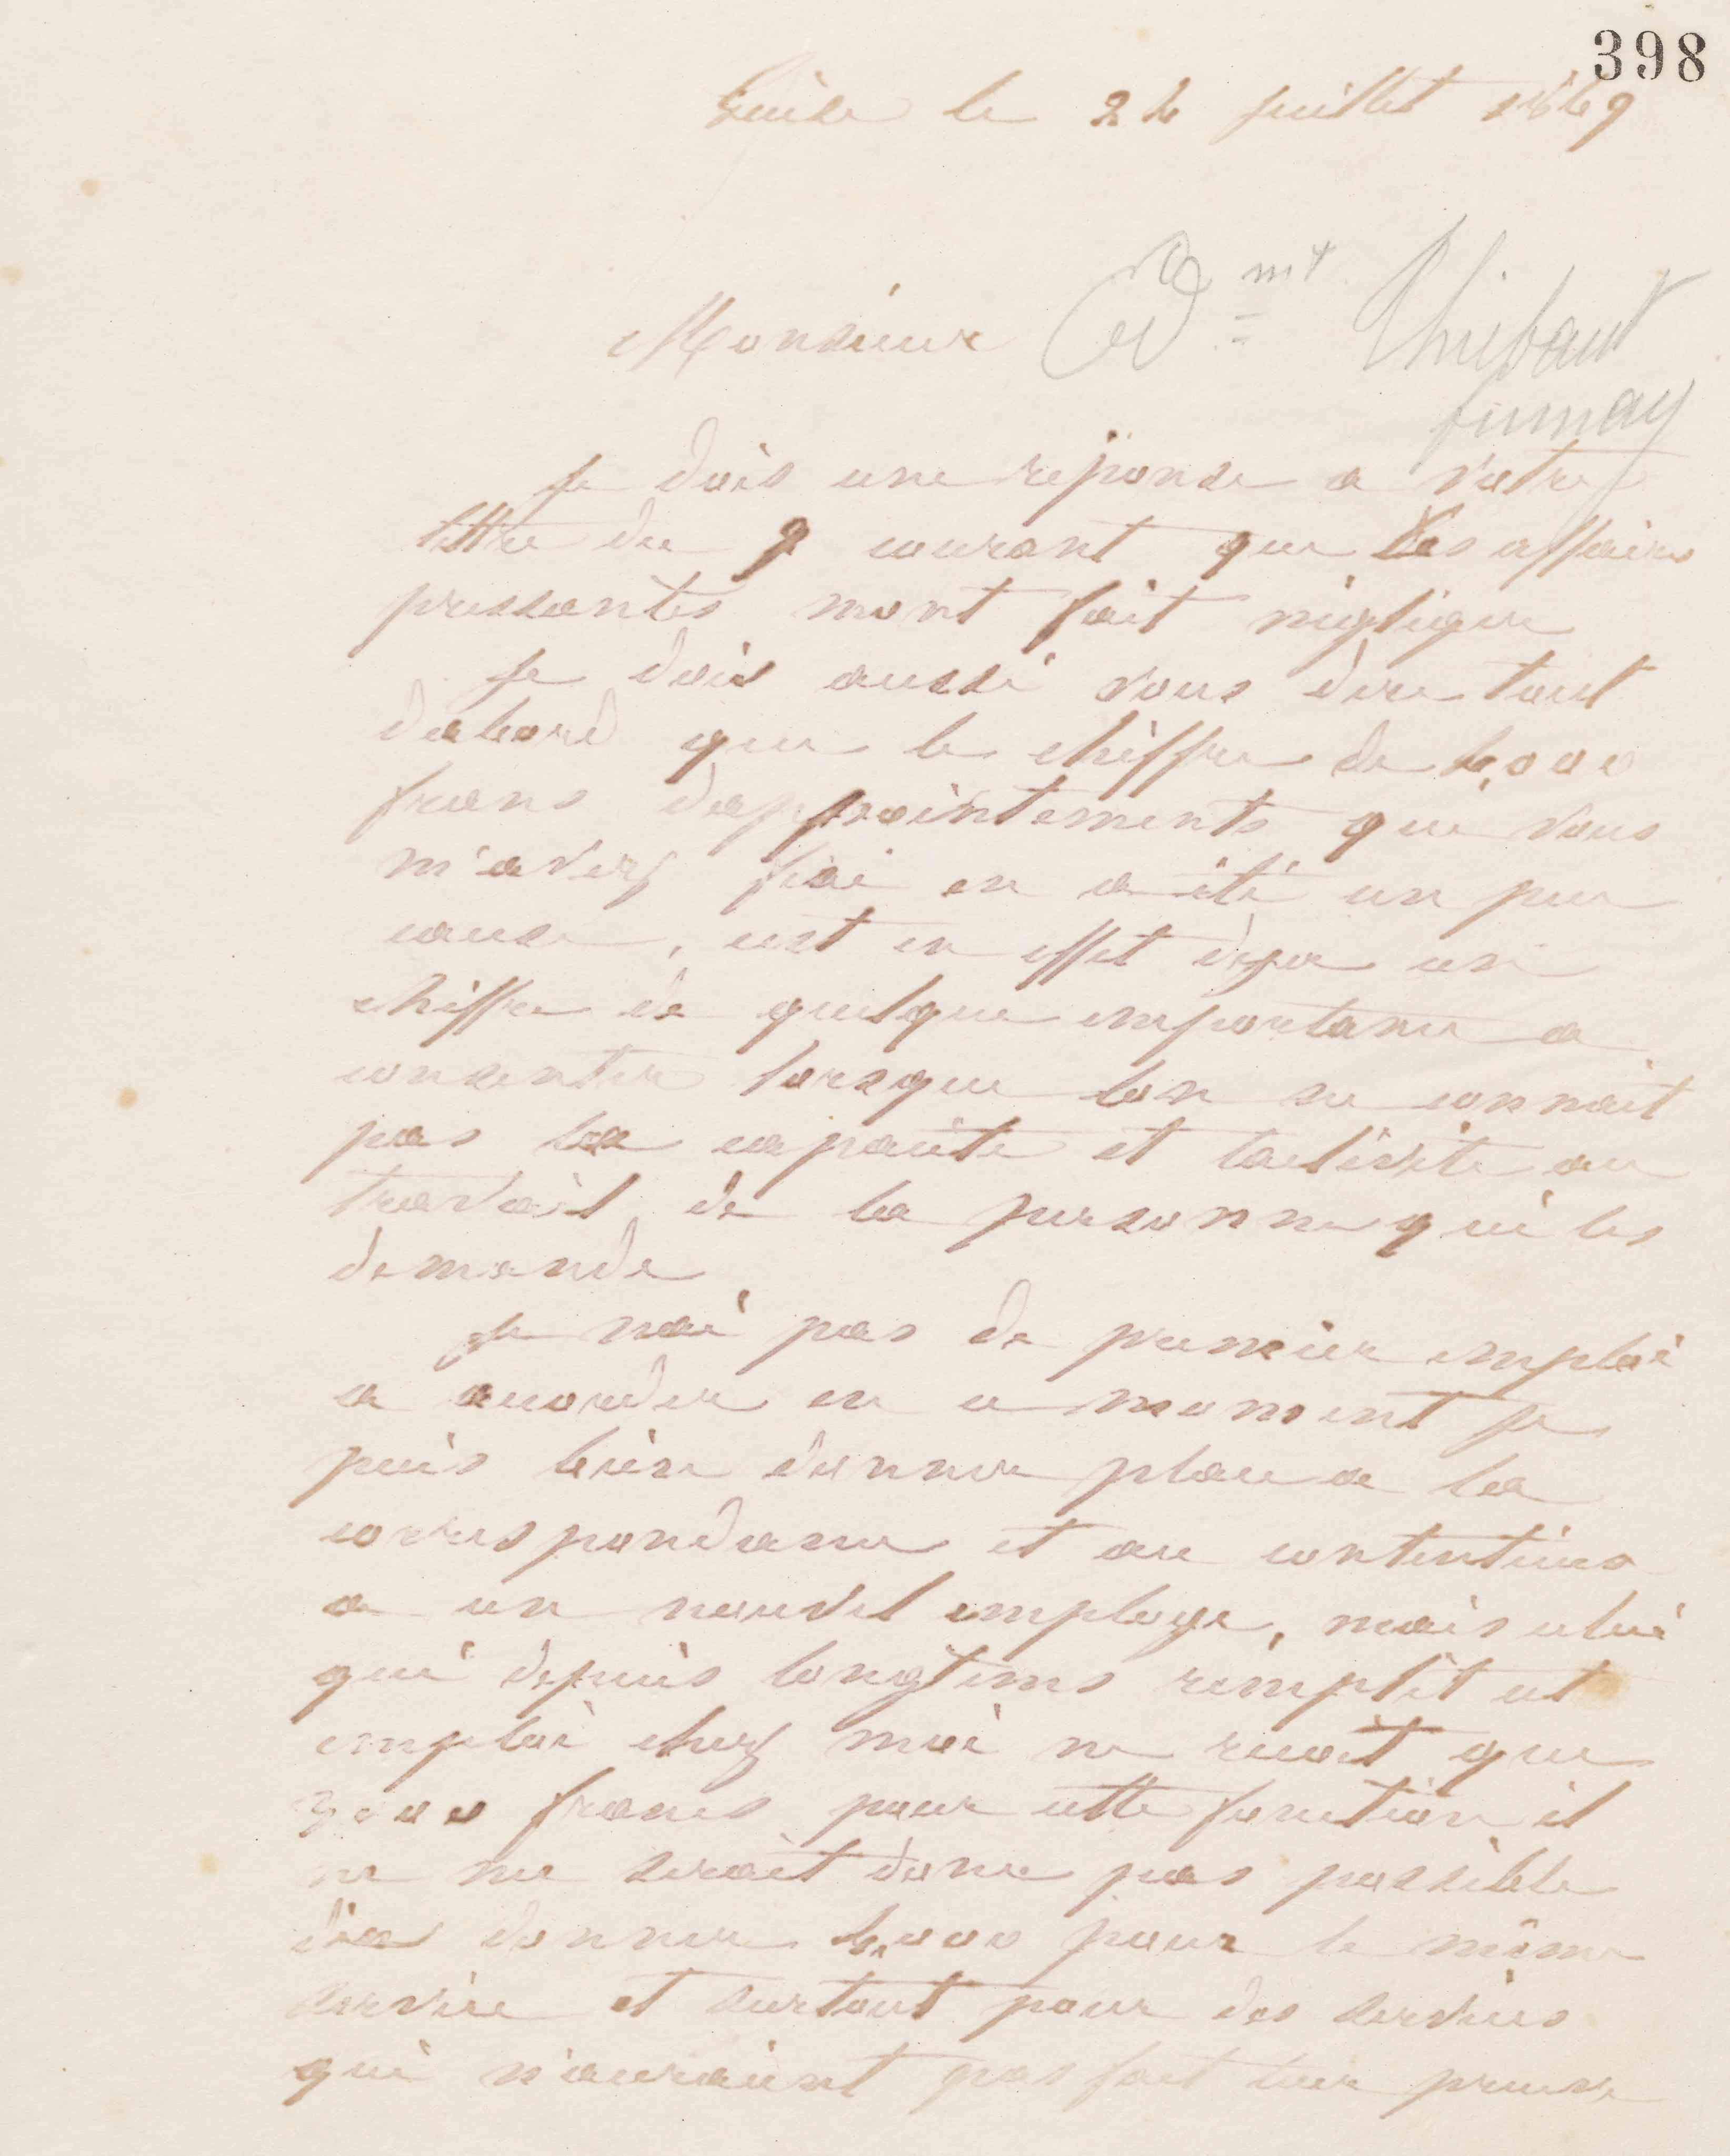 398
Guise le 24 juillet 1869
Monsieur Ed mt Thibaut
fumay
Je dois une réponse a votre
lettre du 9 courant que les affaires
pressantes mont fait négliger
Je dois aussi vous dire tout
dabord que le chiffre de 4,000
francs dappointements que vous
m'avez fixé en a été un peu
cause, cest en effet deja un
chiffre de quelque importance a
consentir lorsque lon ne connait
pas la capacité et lactivité au
travail de la personne qui les
demande
Je nai pas de premier emploi
a accorder en ce moment je
puis bien donner place a la
correspondance et au contentieux
a un nouvel employe, mais celui
qui depuis longtems remplit cet
emploi chez moi ne recoit que
3000 francs pour cette fonction il
ne me serait donc pas possible
den donner 4,000 pour le même
service et surtout pour des services
qui n'auraient pas fait leur preuve